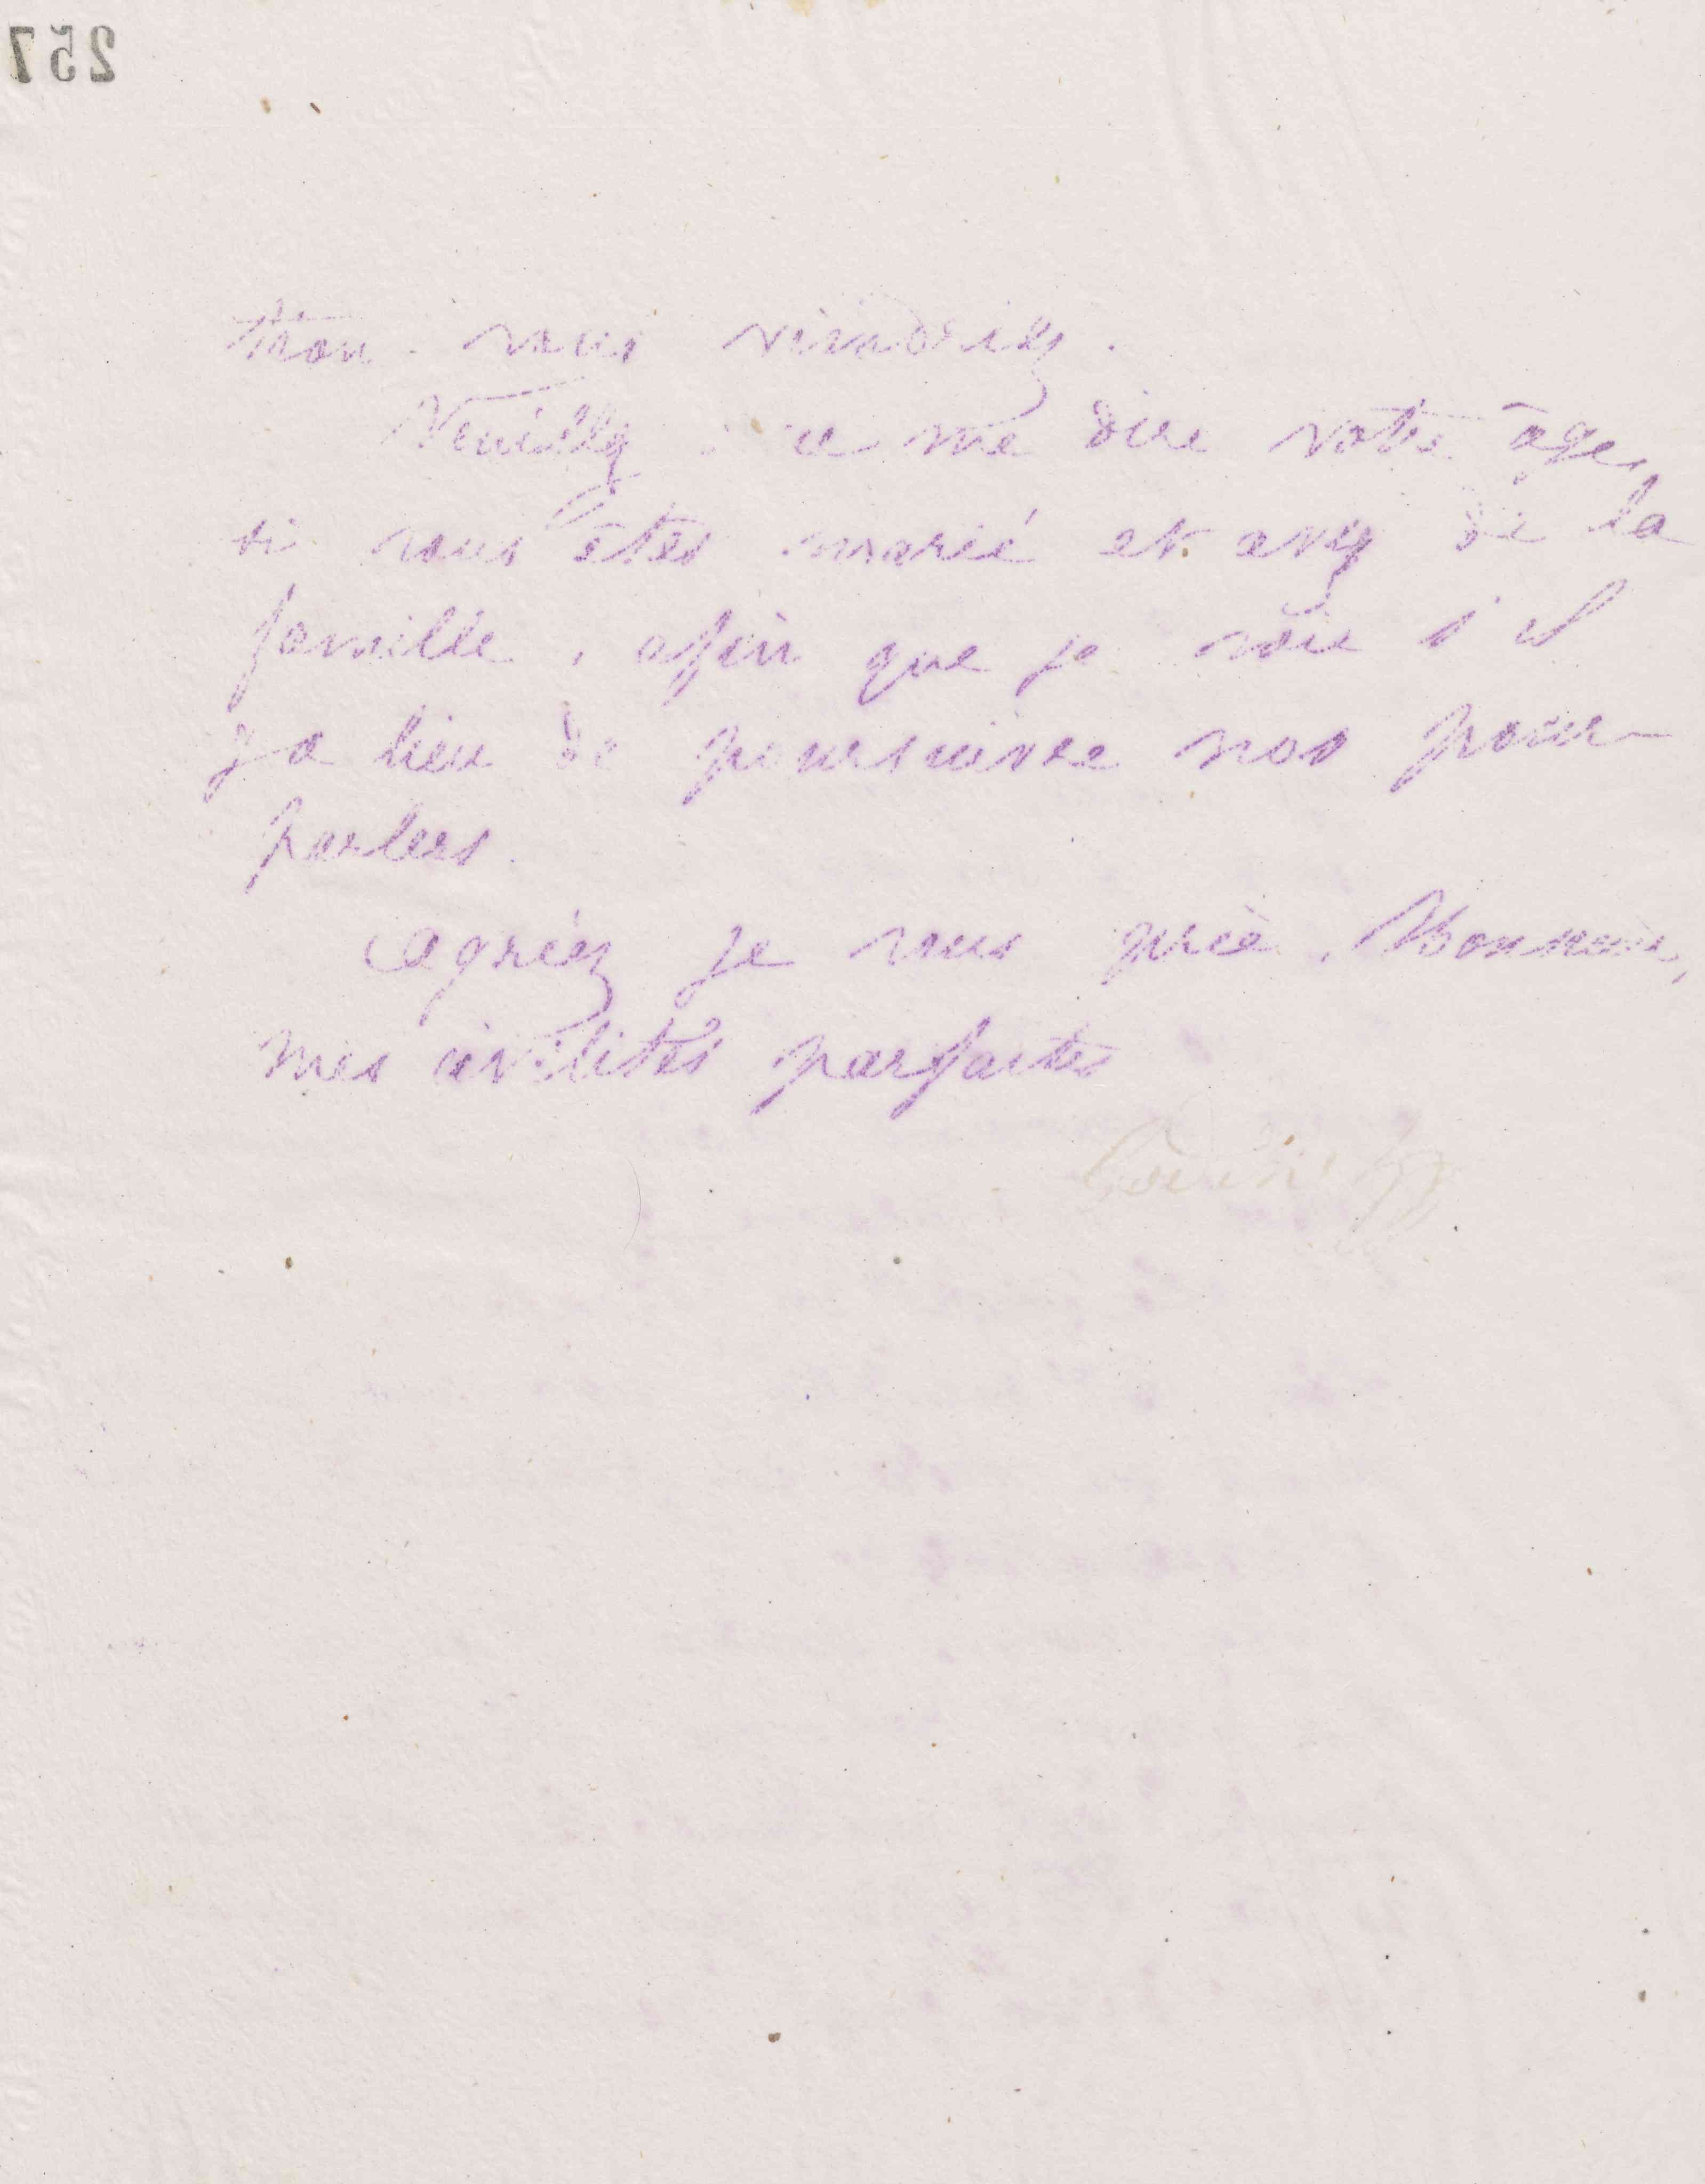 257
tion vous viendriez.
Veuillez me dire votre âge,
si vous êtes marié et avez de la
famille, afin que je voie s'il
y a lieu de poursuivre nos pour-
parlers.
Agréez je vous prie, Monsieur,
mes civilités parfaites
Godin